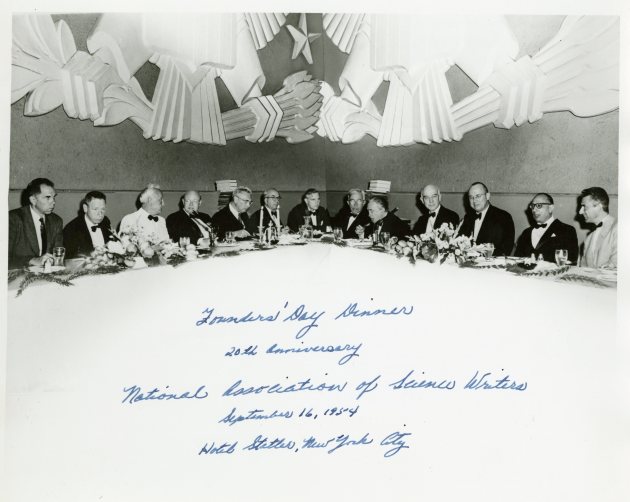 Founders' Day Dinner
20th Anniversary
National Association of Science Writers
September 16, 1954
Hotel Statler, New York City